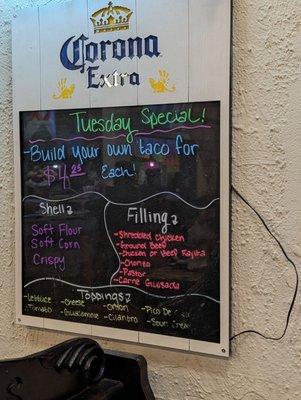 Corona
Extra
Tuesday Special!
-Build your own taco for
$4.25 Each!
Shellz
Soft Flour
Soft Corn
Crispy
Fillingz
-Shredded Chicken
-Ground Beef
-Chicken or Beef Fajita
-Chorizo
-Pastor
-Carne Guisada
Toppingz
-Lettuce -Cheese -Onion -Pico De
-Tomato -Guacamole -Cilantro -Sour Cream